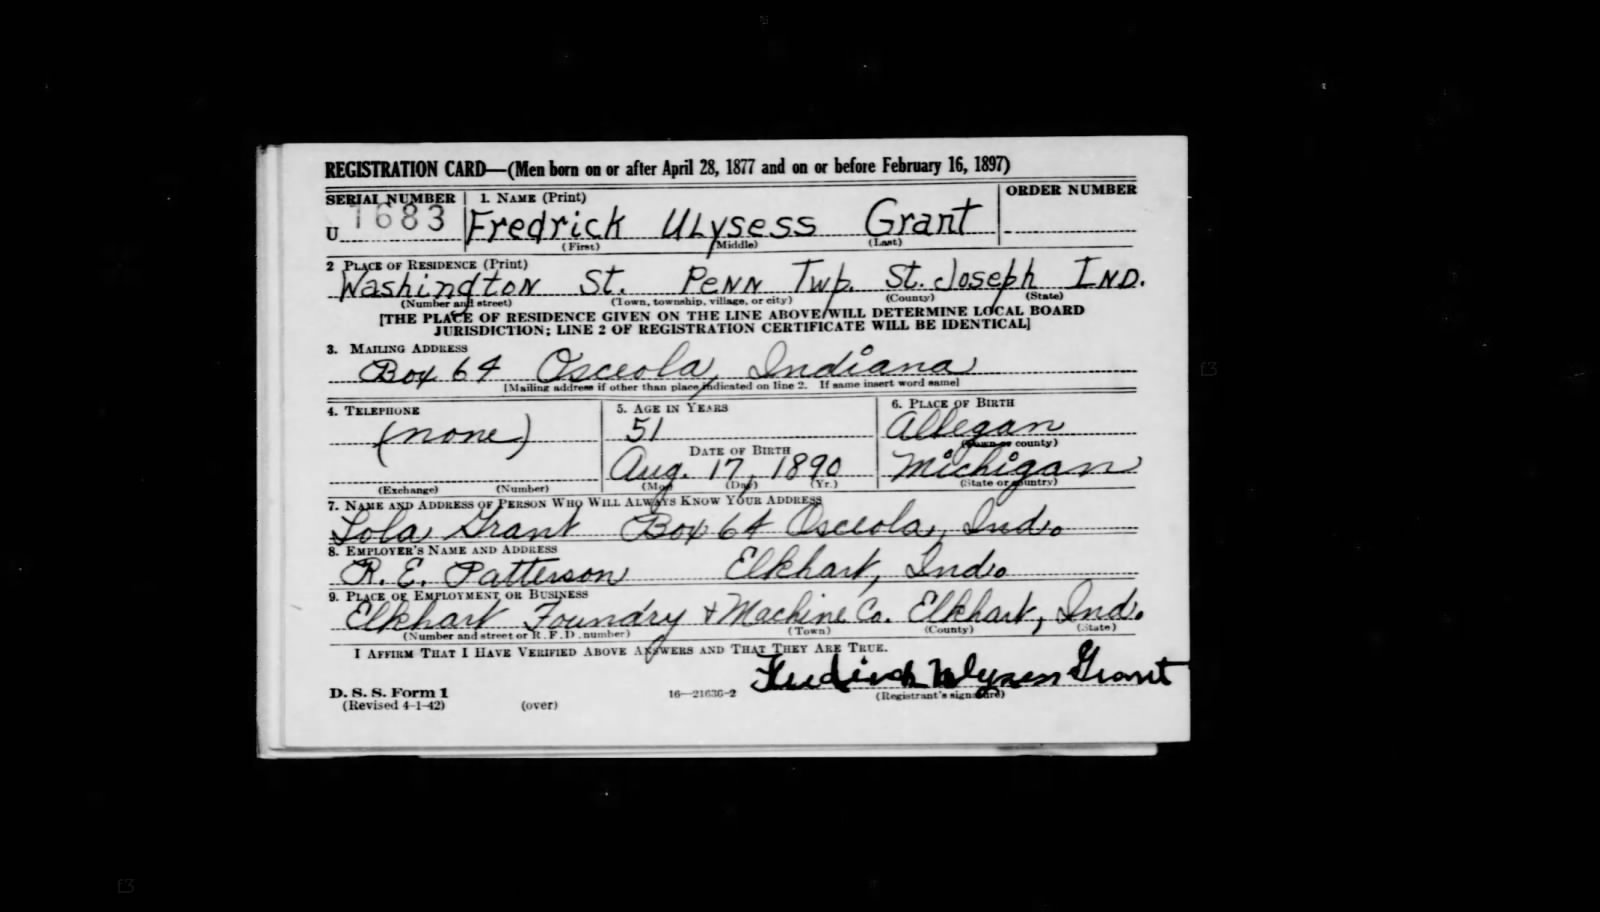 REGISTRATION CARD—(Men born on or after April 28, 1877 and on or before February 16, 1897)
SERIAL NUMBER 1. NAME (Print) ORDER NUMBER
U 1683 Fredrick Ulysess Grant
(First) (Middle) (Last)
2 PLACE OF RESIDENCE (Print)
Washington St. Penn Twp. St. Joseph Ind.
(Number and street) (Town, township, village, or city) (County) (State)
[THE PLACE OF RESIDENCE GIVEN ON THE LINE ABOVE WILL DETERMINE LOCAL BOARD
JURISDICTION; LINE 2 OF REGISTRATION CERTIFICATE WILL BE IDENTICAL]
3. MAILING ADDRESS
Box 64 Osceola, Indiana
[Mailing address if other than place indicated on line 2. If same insert word same]
4. TELEPHONE 5. AGE IN YEARS 6. PLACE OF BIRTH
(none) 51 Allegan
(Town or county)
DATE OF BIRTH
Aug. 17, 1890 Michigan
(Exchange) (Number) (Mo.) (Day) (Yr.) (State or country)
7. NAME AND ADDRESS OF PERSON WHO WILL ALWAYS KNOW YOUR ADDRESS
Lola Grant Box 64 Osceola, Ind.
8. EMPLOYER'S NAME AND ADDRESS
R. E. Patterson Elkhart, Ind.
9. PLACE OF EMPLOYMENT OR BUSINESS
Elkhart Foundry & Machine Co. Elkhart, Ind.
(Number and street or R. F. D. number) (Town) (County) (State)
I AFFIRM THAT I HAVE VERIFIED ABOVE ANSWERS AND THAT THEY ARE TRUE.
Fredrick Ulysess Grant
D. S. S. Form 1 16—21636-2 (Registrant's signature)
(Revised 4-1-42) (over)